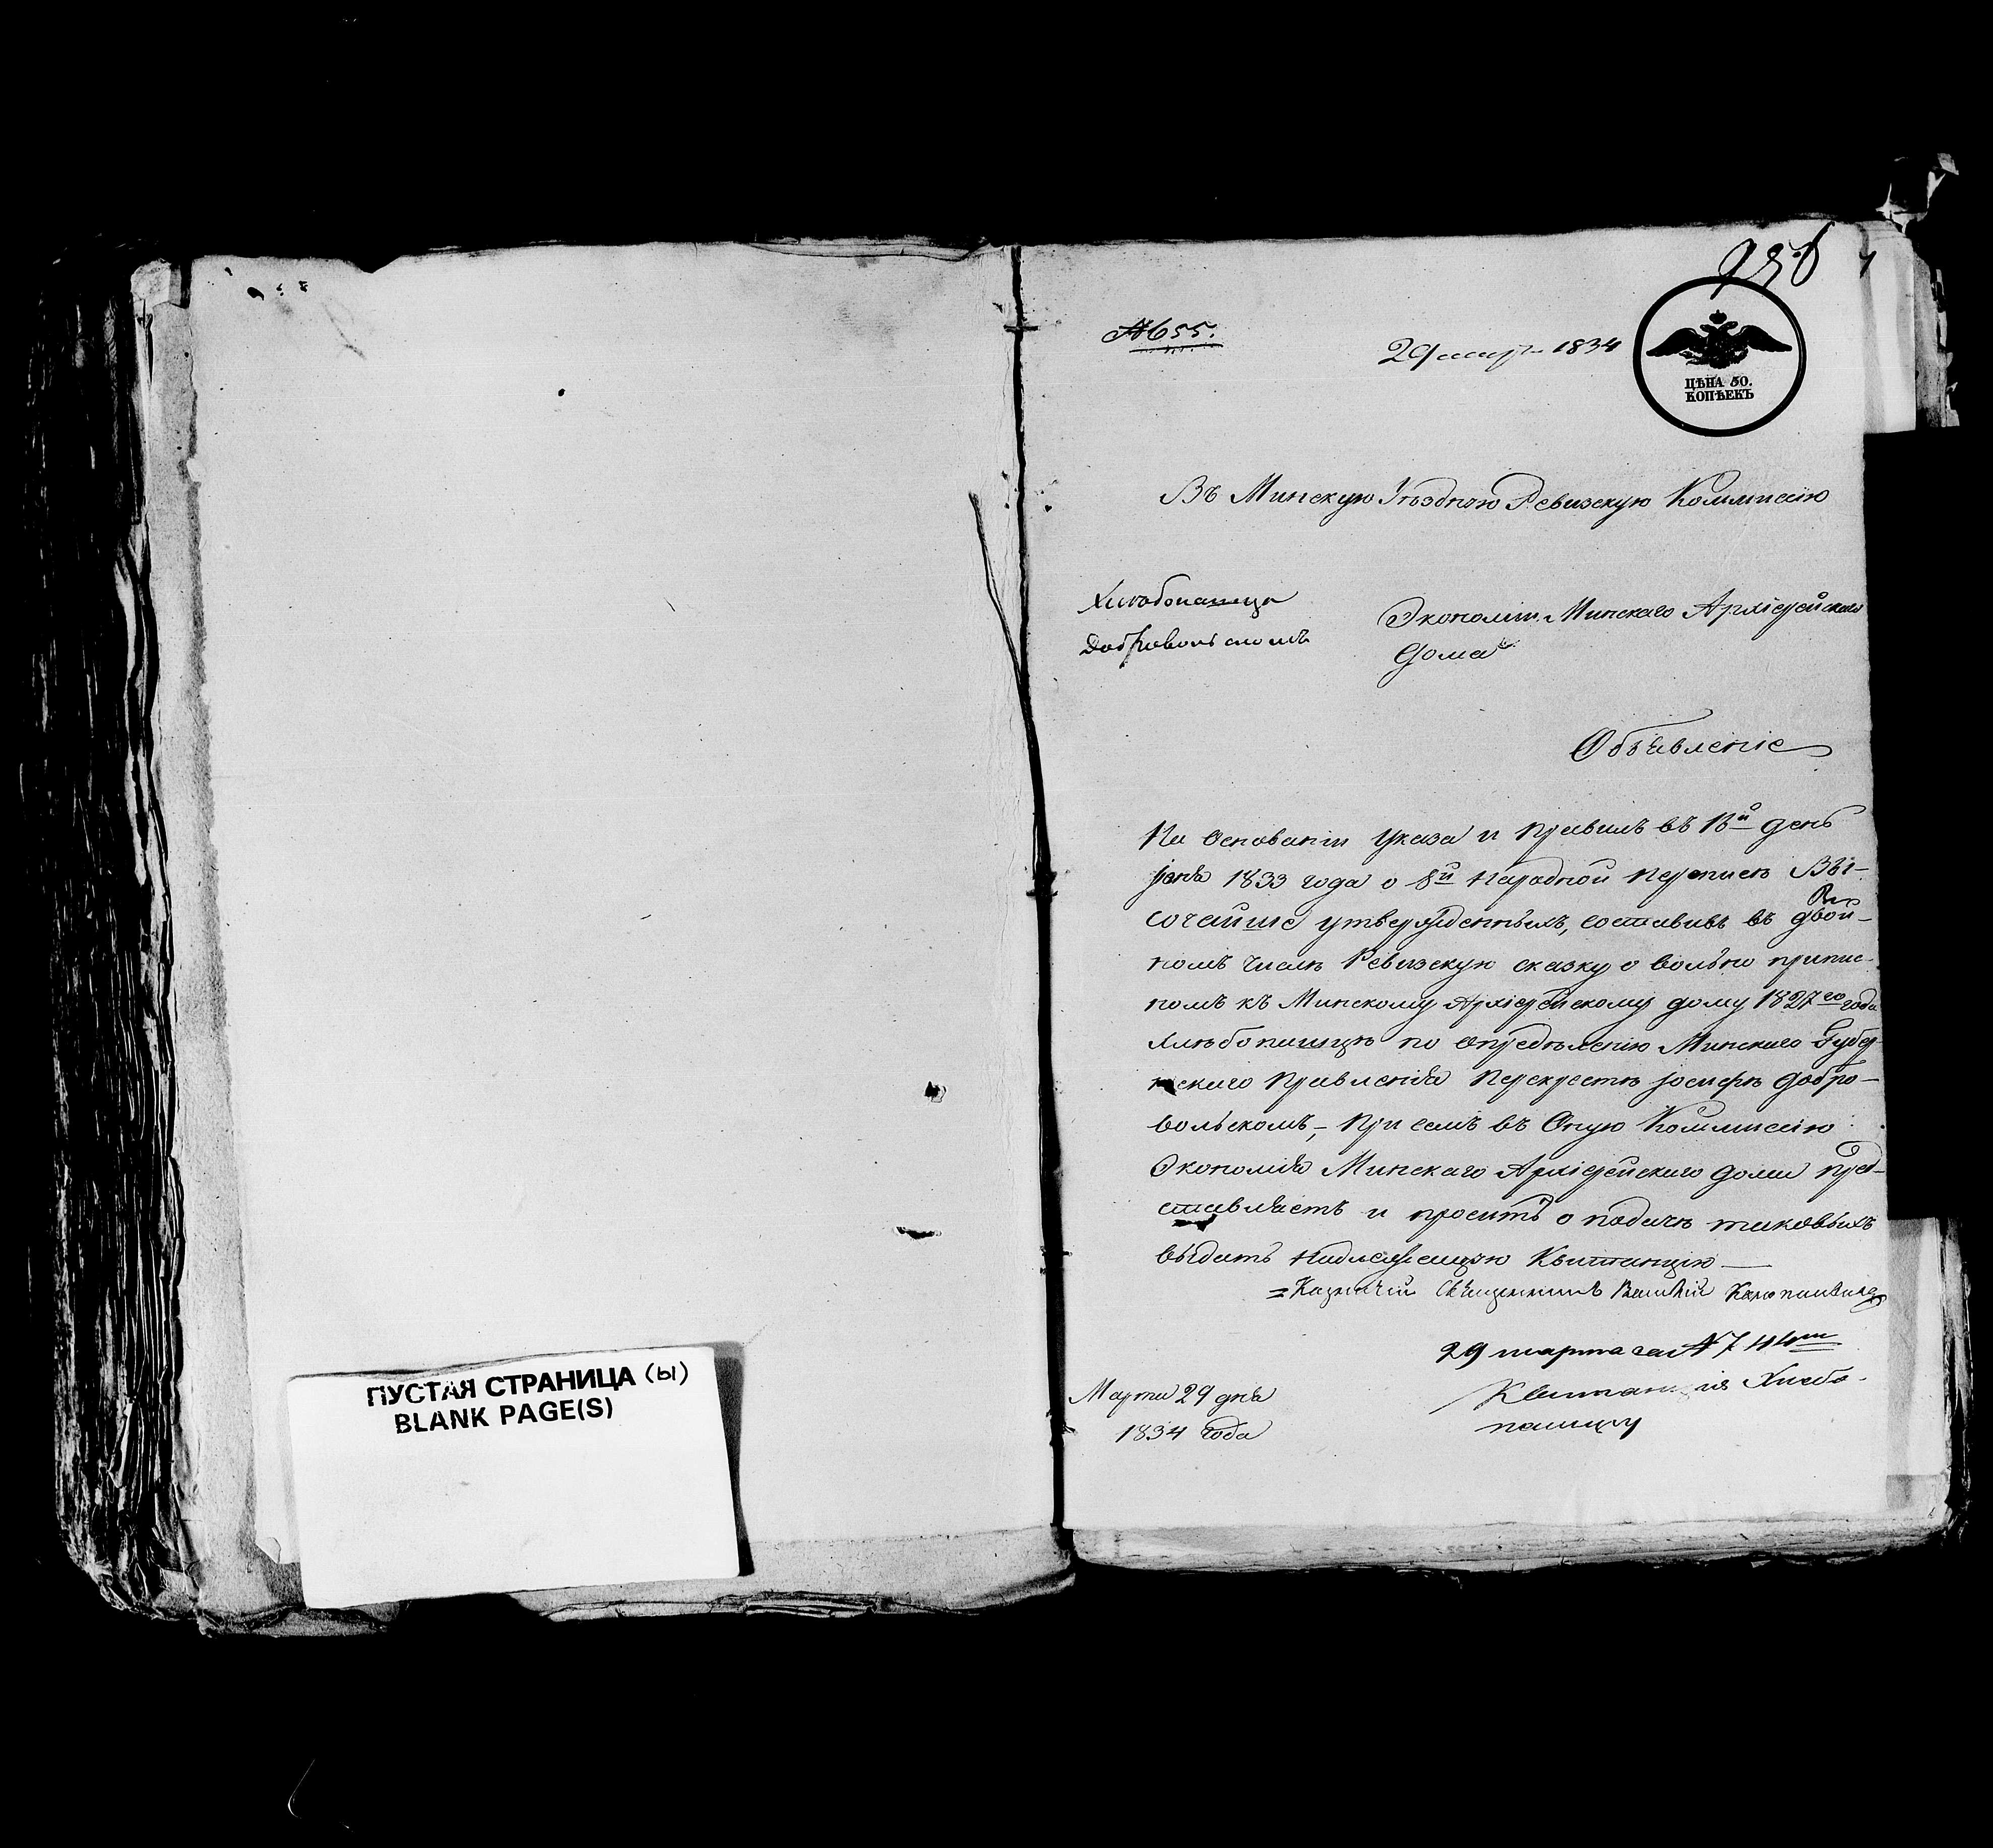 № 655.
29 март 1834
ЦѢНА 50.
КОПѢЕКЪ
Въ Минскую Уѣздную Ревизскую Коммисію
Хлебопашца
Добровольскомъ
Экономіи Минскаго Архіерейскаго
Дома
Объявленіе
На Основаніи Указа и правилъ въ 16й день
іюня 1833 года о 8й Народной переписѣ Вы-
сочайше утвержденныхъ, составивъ въ двой-
номъ числѣ Ревизскую сказку о вольно припис-
номъ къ Минскому Архіерейскому дому 1827го года
хлѣбопашцѣ по опредѣленію Минскаго Губер-
нскаго Правленія Перекрестѣ Іосифѣ Добро-
вольскомъ, При семъ въ Оную Коммисію
Экономія Минскаго Архіерейскаго дома пред-
ставляетъ и проситъ о подачѣ таковыхъ
выдать надлежащую Квитанцію
Казначей Священникъ Василій
29 марта за № 7
Квитанція Хлебо-
пашцу
Марта 29 дня
1834 года
ПУСТАЯ СТРАНИЦА (Ы)
BLANK PAGE(S)